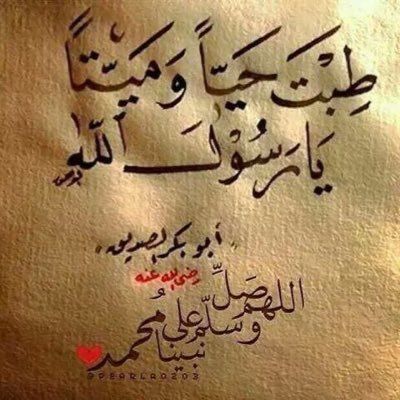 طِبْتَ حَيّاً وَمَيّتاً
يَا رَسُوْلَ اللّٰه
"أبو بكر الصديق"
رضي الله عنه
اللهم صَلِّ
وسلّم على
نبينا مُحمد
@PEARLA0203